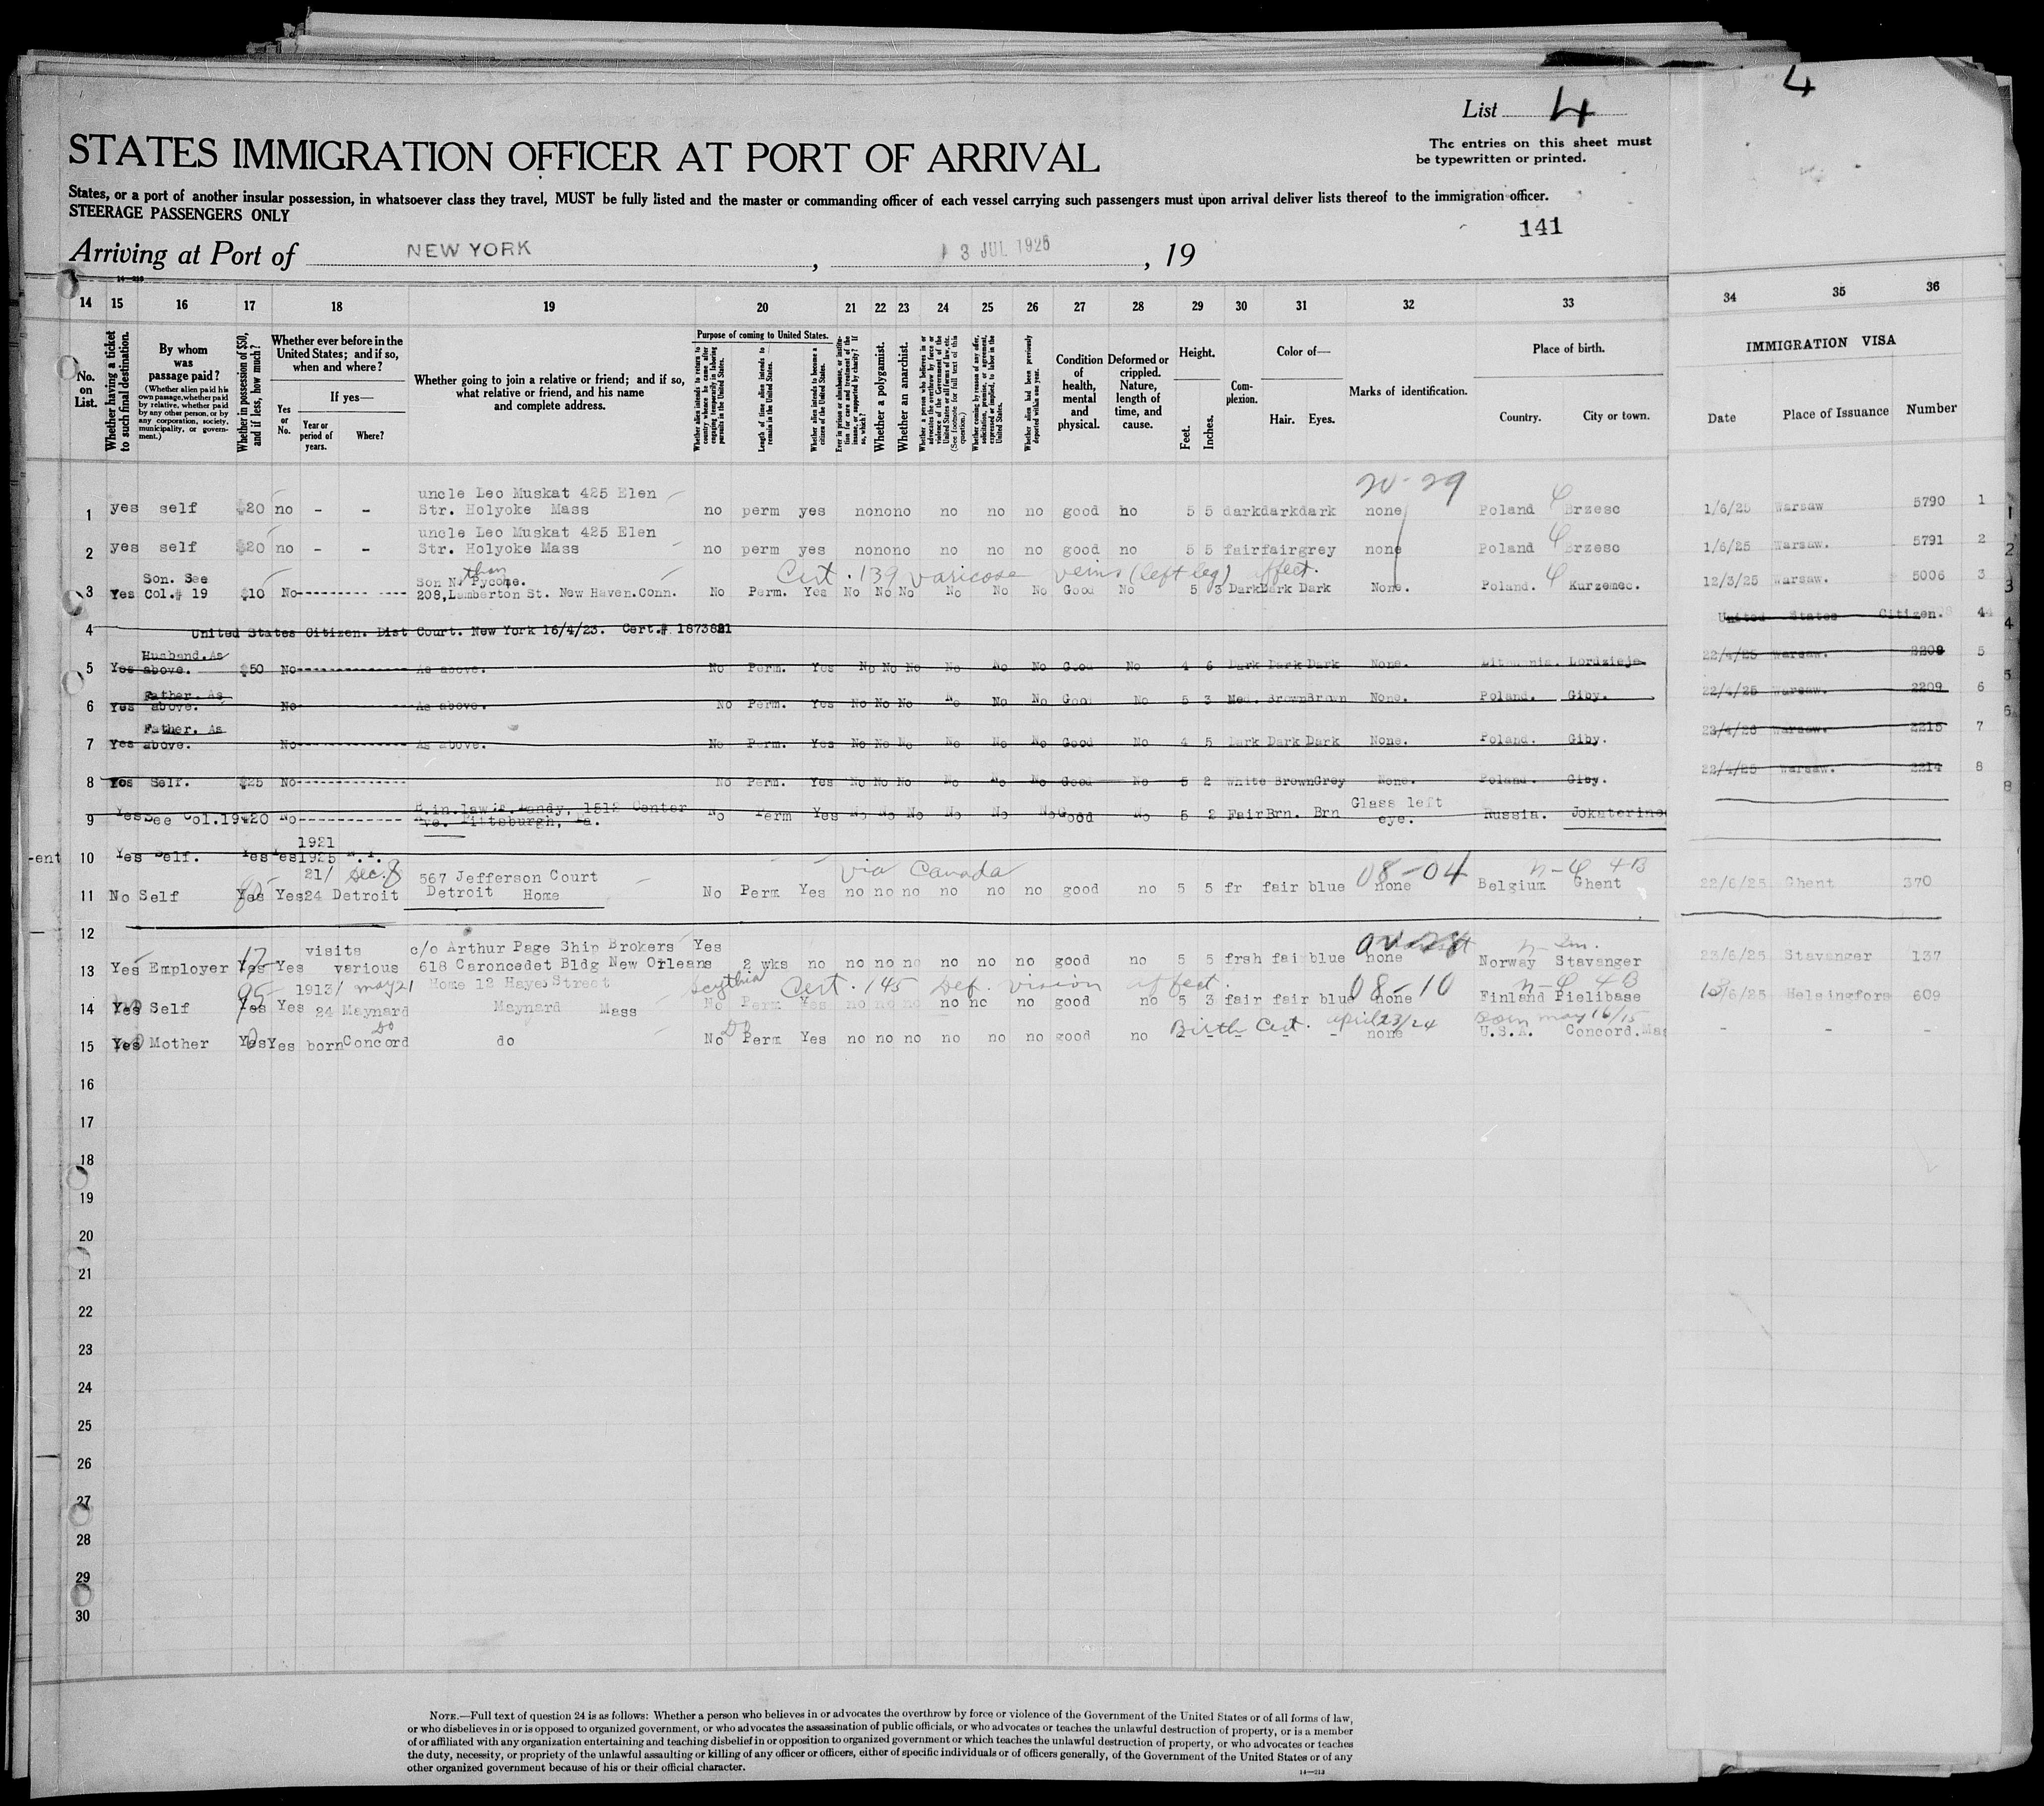 4
List 4
The entries on this sheet must
be typewritten or printed.
STATES IMMIGRATION OFFICER AT PORT OF ARRIVAL
States, or a port of another insular possession, in whatsoever class they travel, MUST be fully listed and the master or commanding officer of each vessel carrying such passengers must upon arrival deliver lists thereof to the immigration officer.
STEERAGE PASSENGERS ONLY
141
Arriving at Port of NEW YORK, 3 JUL 1925, 19
14 15 16 17 18 19 20 21 22 23 24 25 26 27 28 29 30 31 32 33 34 35 36
No. on List.
Whether having a ticket to such final destination.
By whom was passage paid?
(Whether alien paid his own passage, whether paid by relative, whether paid by any other person, or by any corporation, society, municipality, or government.)
Whether in possession of $50, and if less, how much?
Whether ever before in the United States; and if so, when and where?
Yes or No.
If yes—
Year or period of years.
Where?
Whether going to join a relative or friend; and if so, what relative or friend, and his name and complete address.
Purpose of coming to United States.
Whether alien intends to return to country whence he came after engaging temporarily in laboring pursuits in the United States.
Length of time alien intends to remain in the United States.
Whether alien intends to become a citizen of the United States.
Ever in prison or almshouse, or institution for care and treatment of the insane, or supported by charity? If so, which?
Whether a polygamist.
Whether an anarchist.
Whether a person who believes in or advocates the overthrow by force or violence of the Government of the United States or all forms of law, etc. (See footnote for full text of this question.)
Whether coming by reason of any offer, solicitation, promise, or agreement, expressed or implied, to labor in the United States.
Whether alien had been previously deported within one year.
Condition of health, mental and physical.
Deformed or crippled. Nature, length of time, and cause.
Height.
Feet. Inches.
Complexion.
Color of—
Hair. Eyes.
Marks of identification.
Place of birth.
Country. City or town.
IMMIGRATION VISA
Date Place of Issuance Number
20-29
uncle Leo Muskat 425 Elen
1 yes self $20 no - - Str. Holyoke Mass no perm yes no no no no no no good no 5 5 dark dark dark none Poland Brzesc 1/6/25 Warsaw 5790 1
uncle Leo Muskat 425 Elen
2 yes self $20 no - - Str. Holyoke Mass no perm yes no no no no no no good no 5 5 fair fair grey none Poland Brzesc 1/6/25 Warsaw. 5791 2
Cert. 139 varicose veins (left leg) affect.
Son. See than Son N. Pycone.
3 Yes Col.# 19 $10 No 208, Lamberton St. New Haven. Conn. No Perm. Yes No No No No No No Good No 5 3 Dark Dark Dark None. Poland. Kurzemec. 12/3/25 Warsaw. 5006 3
4 United States Citizen. Dist Court. New York 16/4/23. Cert.# 1873821 United States Citizen. 4
Husband. As
5 Yes above. $50 No As above. No Perm. Yes No No No No No No Good No 4 6 Dark Dark Dark None. Lithuania. Lordzieje 22/4/25 Warsaw. 2208 5
Father. As
6 Yes above. No As above. No Perm. Yes No No No No No Good No 5 3 Med. Brown Brown None. Poland. Giby. 22/4/25 Warsaw. 2209 6
Father. As
7 Yes above. No As above. No Perm. Yes No No No No No No Good No 4 5 Dark Dark Dark None. Poland. Giby. Warsaw. 2215 7
8 Yes Self. $25 No No Perm. Yes No No No No No No Good No 5 2 White Brown Grey None. Poland. Giby. 22/4/25 Warsaw. 2214 8
B.in.law 1512 Center
9 Yes See Col.19 $20 No Ave. Pittsburgh, Pa. No Perm Yes No No No No No No Good No 5 2 Fair Brn. Brn Glass left eye. Russia. Jokaterino
1921
-ent 10 Yes Self. Yes Yes 1925 N.Y.
via Canada 08-04
21/ 567 Jefferson Court
11 No Self Yes Yes 24 Detroit Detroit Home No Perm Yes no no no no no no good no 5 5 fr fair blue none Belgium Ghent 22/6/25 Ghent 370
12
17 visits c/o Arthur Page Ship Brokers Yes
13 Yes Employer Yes Yes various 618 Caroncedet Bldg New Orleans 2 wks no no no no no no no good no 5 5 frsh fai blue none Norway Stavanger 23/6/25 Stavanger 137
1913/ May 21 Home 12 Hayes Street Scythia Cert. 145 Def. vision affect. 08-10
14 Yes Self Yes Yes 24 Maynard Maynard Mass No Perm Yes no no no no no no good no 5 3 fair fair blue none Finland Pielibase /6/25 Helsingfors 609
Do Do Birth Cert. april 23/24 Born may 16/15
15 Yes Mother Yes Yes born Concord do No Perm Yes no no no no no no good no - - - - - none U.S.A. Concord. Mas - - -
16
17
18
19
20
21
22
23
24
25
26
27
28
29
30
NOTE.—Full text of question 24 is as follows: Whether a person who believes in or advocates the overthrow by force or violence of the Government of the United States or of all forms of law,
or who disbelieves in or is opposed to organized government, or who advocates the assassination of public officials, or who advocates or teaches the unlawful destruction of property, or is a member
of or affiliated with any organization entertaining and teaching disbelief in or opposition to organized government or which teaches the unlawful destruction of property, or who advocates or teaches
the duty, necessity, or propriety of the unlawful assaulting or killing of any officer or officers, either of specific individuals or of officers generally, of the Government of the United States or of any
other organized government because of his or their official character.
14—213